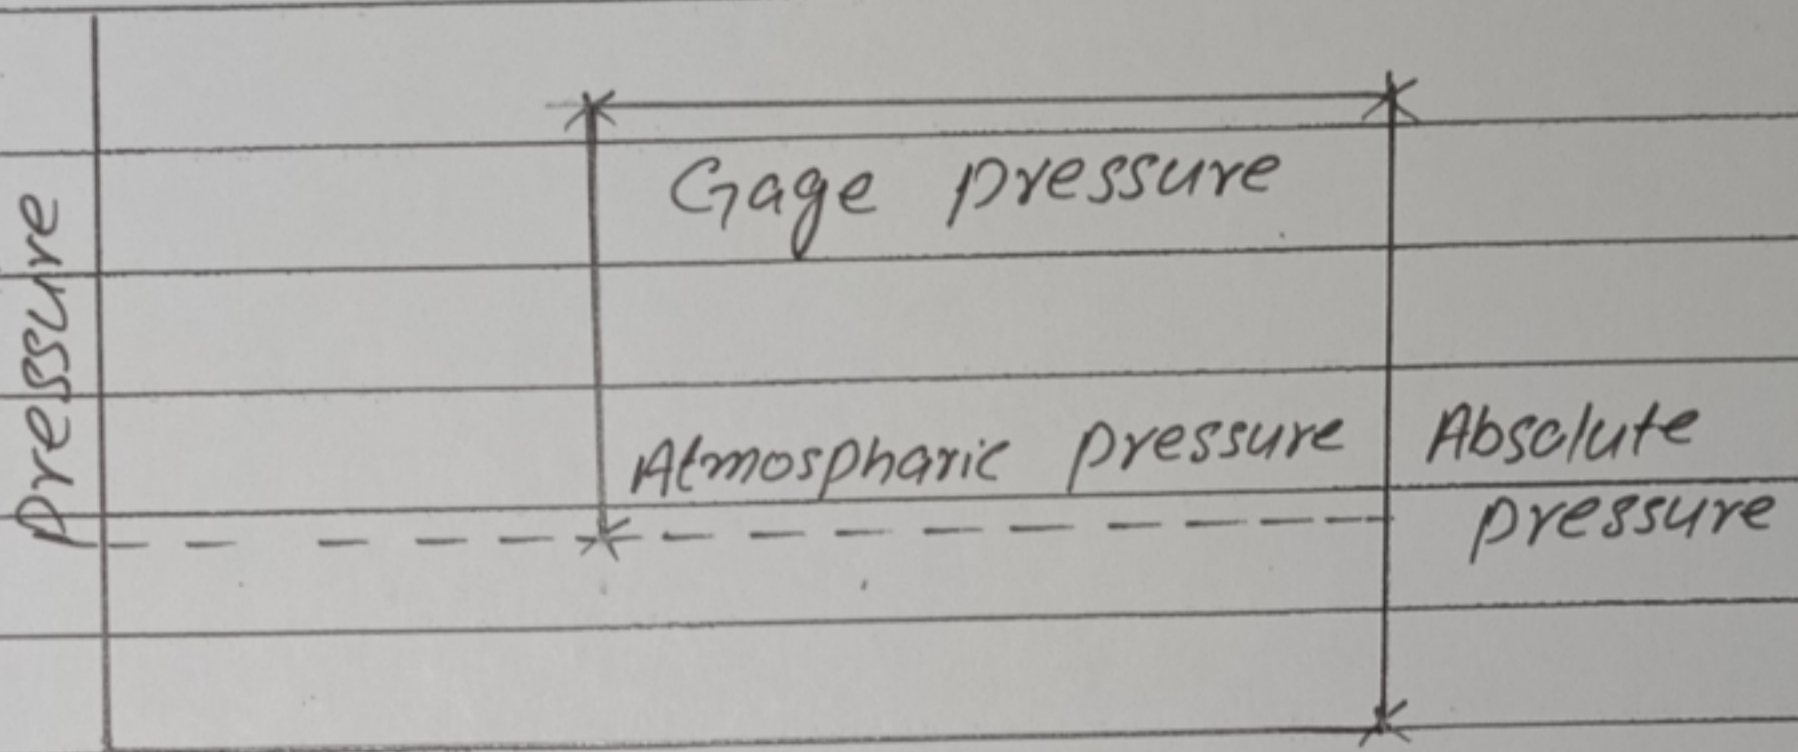 Pressure
Gage pressure
Atmospharic pressure
Absolute
pressure